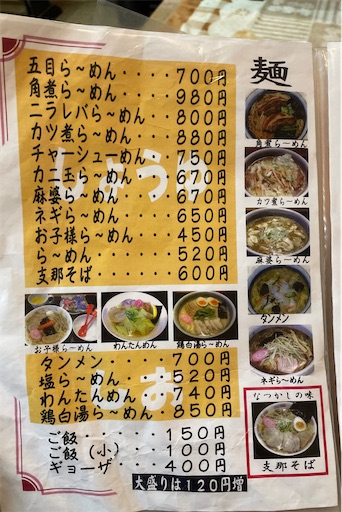 麺
しょうゆ
五目ら～めん・・・・700円
角煮ら～めん・・・・980円
ニラレバら～めん・・800円
カツ煮ら～めん・・・880円
チャーシューめん・・750円
カニ玉ら～めん・・・670円
麻婆ら～めん・・・・670円
ネギら～めん・・・・650円
お子様ら～めん・・・450円
ら～めん・・・・・・520円
支那そば・・・・・・600円
お子様ら～めん
わんたんめん
鶏白湯ら～めん
しお
タンメン・・・・・・700円
塩ら～めん・・・・・520円
わんたんめん・・・・740円
鶏白湯ら～めん・・・850円
ご飯・・・・・150円
ご飯（小）・・100円
ギョーザ・・・400円
大盛りは120円増
角煮ら～めん
カツ煮ら～めん
麻婆ら～めん
タンメン
ネギら～めん
なつかしの味
支那そば